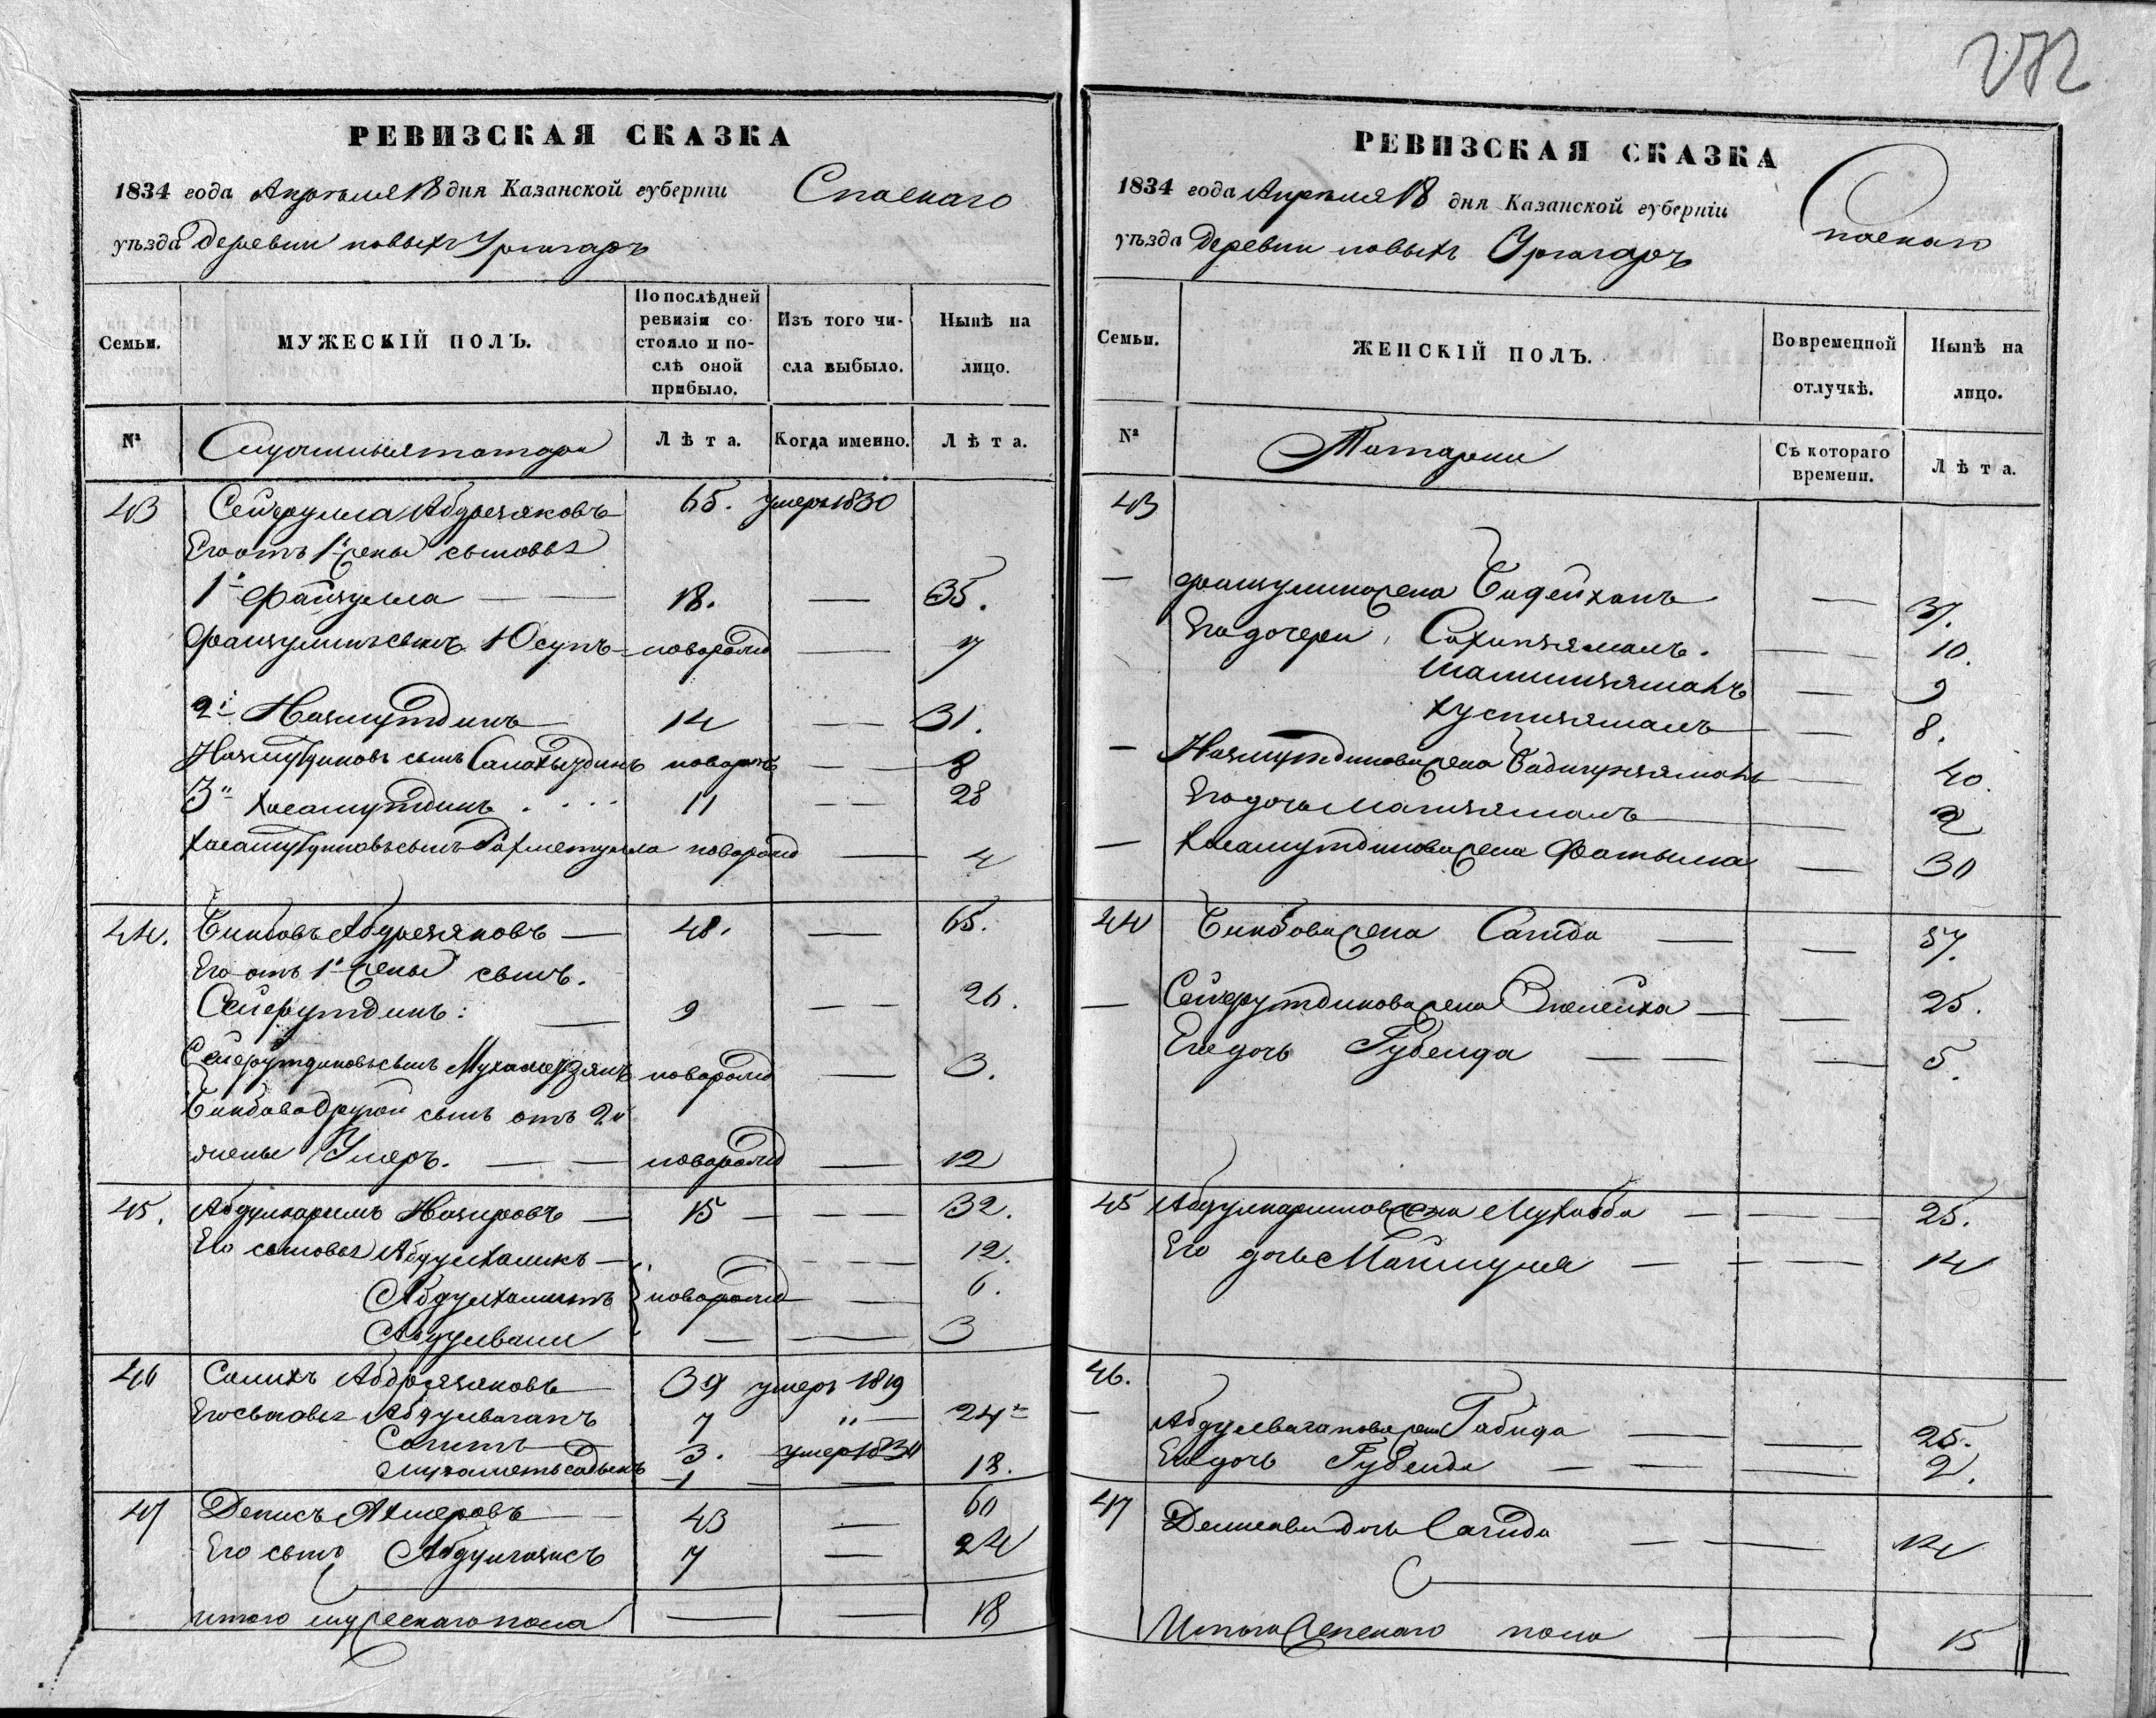 РЕВИЗСКАЯ СКАЗКА
1834 года Апреля 18 дня Казанской губерніи Спаскаго
уѣзда Деревни новыхъ Ургагаръ
Семьи.
МУЖЕСКІЙ ПОЛЪ.
По послѣдней ревизіи состояло и послѣ оной прибыло.
Изъ того числа выбыло.
Нынѣ на лицо.
№
татара
Лѣта.
Когда именно.
Лѣта.
43 Сейфулла Абдрезяковъ 65. умеръ 1830
Его отъ 1й жены сыновья
1й Файзулла — — 18. — 35.
Файзулинъ сынъ Юсупъ — новорожд — 7
2й Назмутдинъ — 14 — 31.
Назмутдиновъ сынъ Салахутдинъ новорож — 8
3й Хисамутдинъ . . . . 11 — 28
Хисамутдиновъ сынъ Рахметулла новорожд — 4
44. Бикбовъ Абдрезяковъ — 48. — 65.
Его отъ 1й жены сынъ.
Сейфутдинъ: — 9 — 26.
Сейфутдиновъ сынъ Мухаметзянъ новорожд — 3.
Бикбова другой сынъ отъ 2й
жены Умеръ. — — новорожд — 12
45. Абдулкаримъ Назировъ — 15 — — 32.
Его сыновья Абдулхаликъ — — 12.
Абдулхалитъ новорожд — 6.
Абдулвали — — 3
46 Салихъ Абдрезяковъ 39 умеръ 1819
Его сыновья Абдулваганъ 7 „ — 24
Сагитъ 3. умеръ 1834
Мухаметьсадыкъ 1 — 18.
47 Денисъ Ахмеровъ — — 43 — 60
Его сынъ Абдулгазисъ 7 — 24
итого мужескаго пола — — 18
РЕВИЗСКАЯ СКАЗКА
1834 года Апреля 18 дня Казанской губерніи Спаскаго
уѣзда Деревни новыхъ Ургагаръ
Семьи.
ЖЕНСКІЙ ПОЛЪ.
Во временной отлучкѣ.
Нынѣ на лицо.
№
Татарки
Съ котораго времени.
Лѣта.
43
— Файзулина жена Бидейханъ — 37.
Его дочери, Сахипзямалъ. — 10.
Шамсизямалъ — 9
Хуснизямалъ — 8.
— Назмутдинова жена Бадигузямалъ — 40.
Его дочь Магизямалъ — 2
— Хисамутдинова жена Фатыма — 30
44 Бикбова жена Сагида — — 57.
— Сейфутдинова жена Зюлейха — — 25.
Ея дочь Губейда — — — 5.
45 Абдулкаримова жена Мухибба — — — 25.
Его дочь Маймуня — — — 14
46.
— Абдулваганова жена Габида — — 25.
Ея дочь Губейда — — — 2.
47 Денисова дочь Сагида — — — 14
Итого женскаго пола — — 15